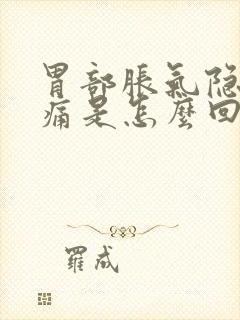 胃部脹氣隐
痛是怎麼回
羅成